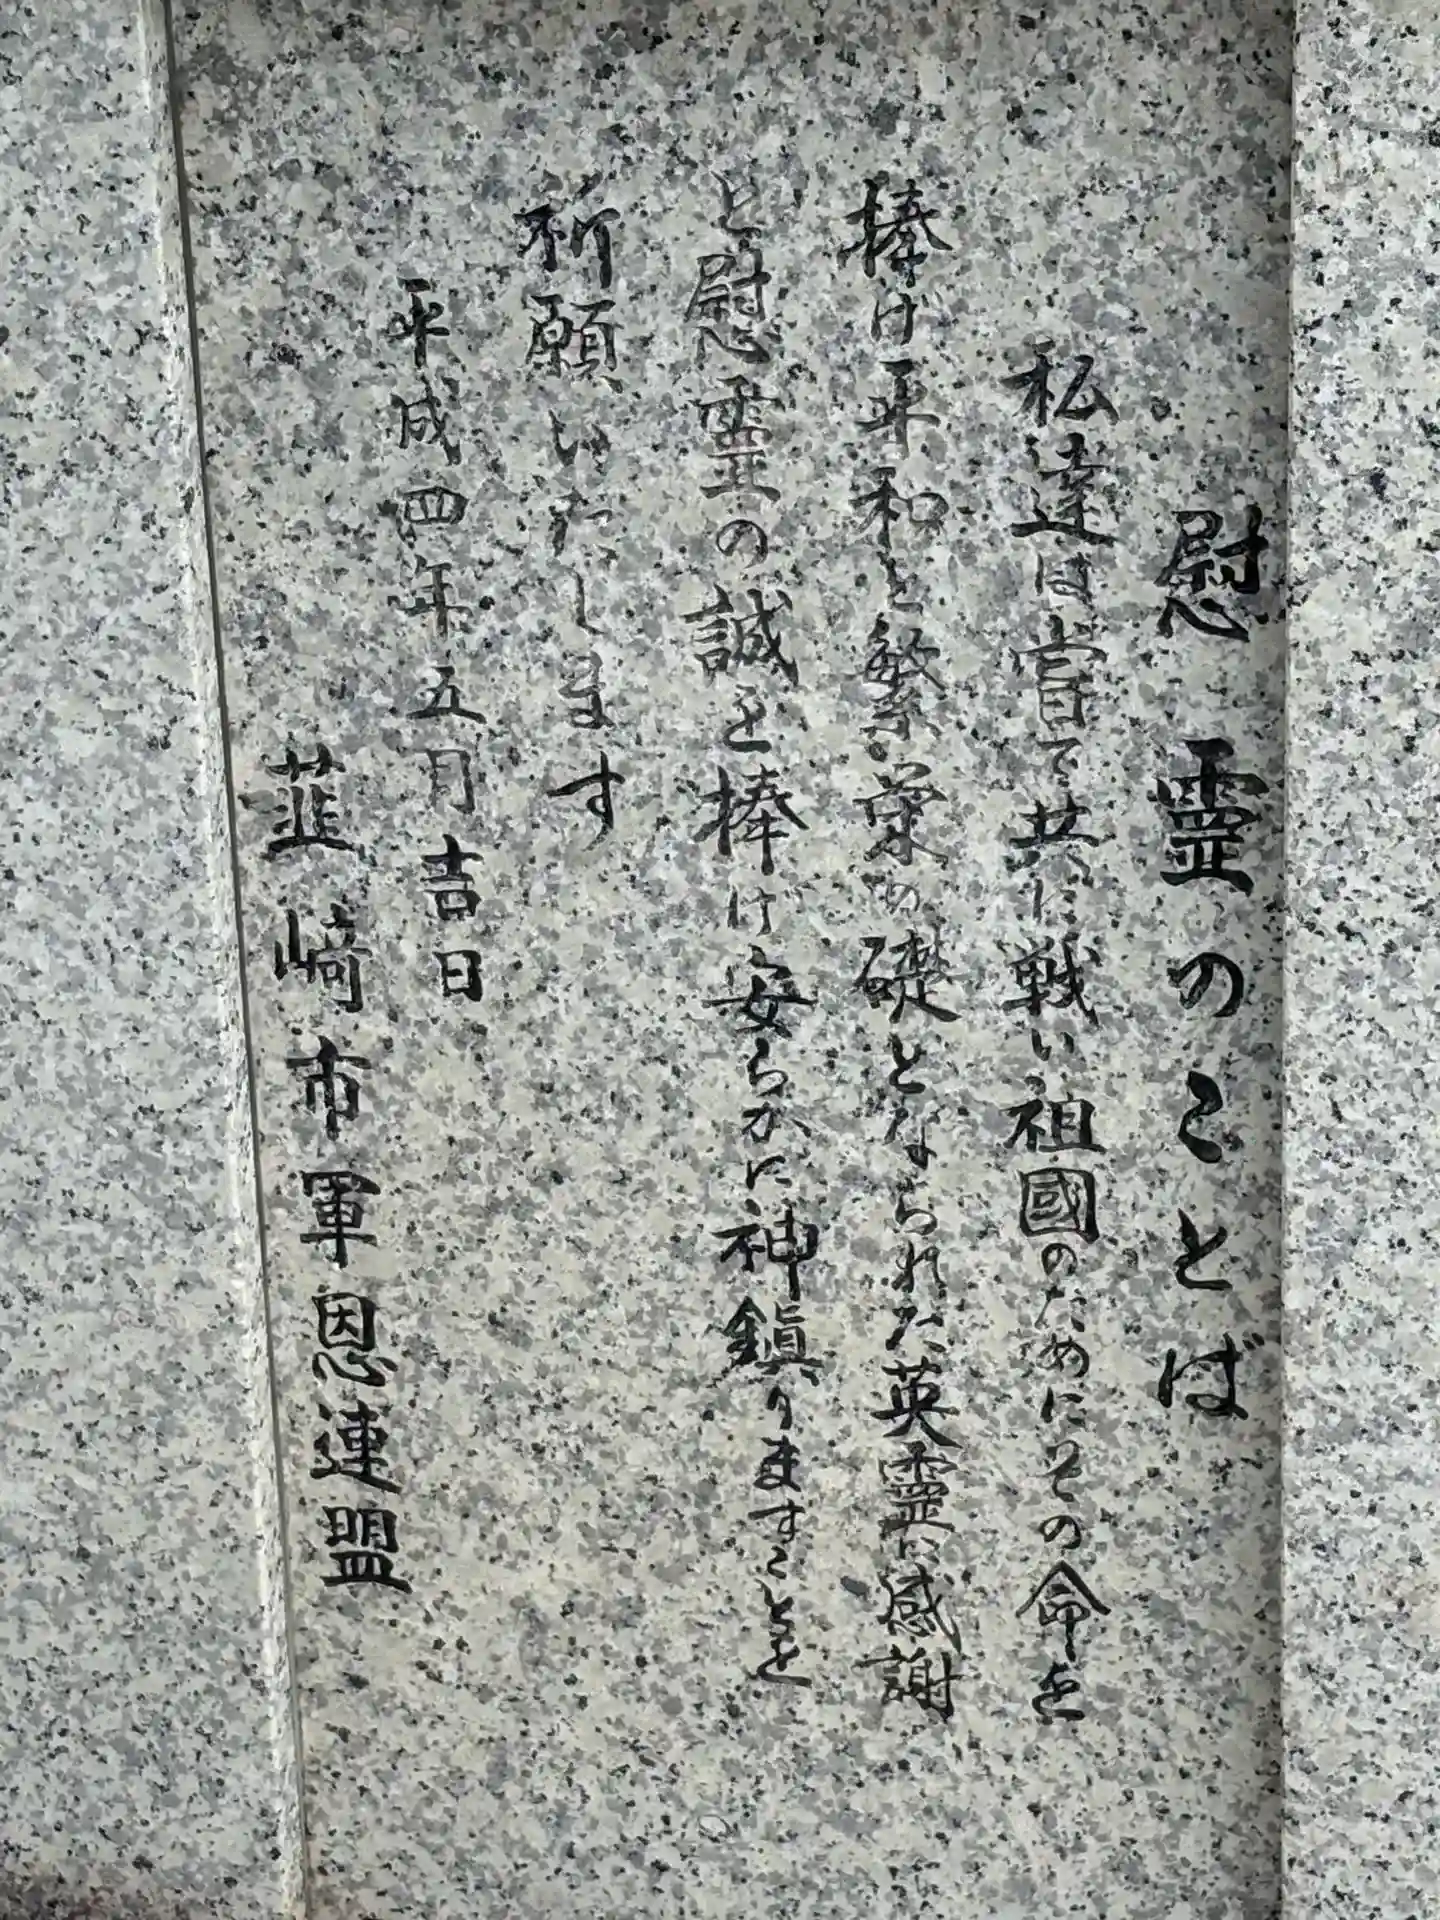 慰霊のことば
私達は嘗て共に戦い祖國のためにその命を
捧げ平和と繁栄の礎となられた英霊に感謝
と慰霊の誠を捧げ安らかに神鎮りますことを
祈願いたします
平成四年五月吉日
韮崎市軍恩連盟